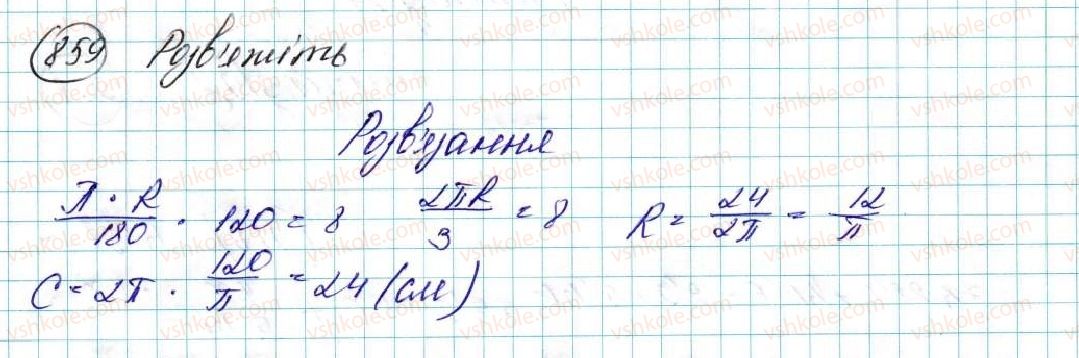 859 Розв'яжіть
Розв'язання
π · R / 180 · 120 = 8    2πR / 3 = 8    R = 24 / 2π = 12 / π
C = 2π · 120 / π = 24 (см)